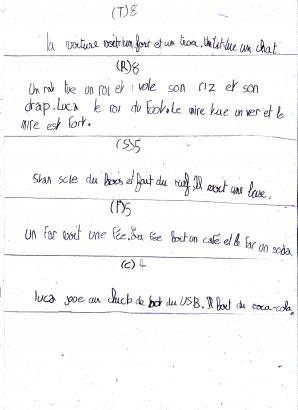 (T)8
la voiture voit un fort et un
un chat
(R)8
Un rat tue un roi et vole son riz et son
drap. Luca le roi du foot. Le mire tue un ver et le
mire est fort.
(S)5
Stan scie du bois et fait du surf. Il voit une base.
(F)5
un far voit une fée. La fée boit un café et le far un soda
(C) 4
luca joue au de du USB. Il boit du coca-cola.